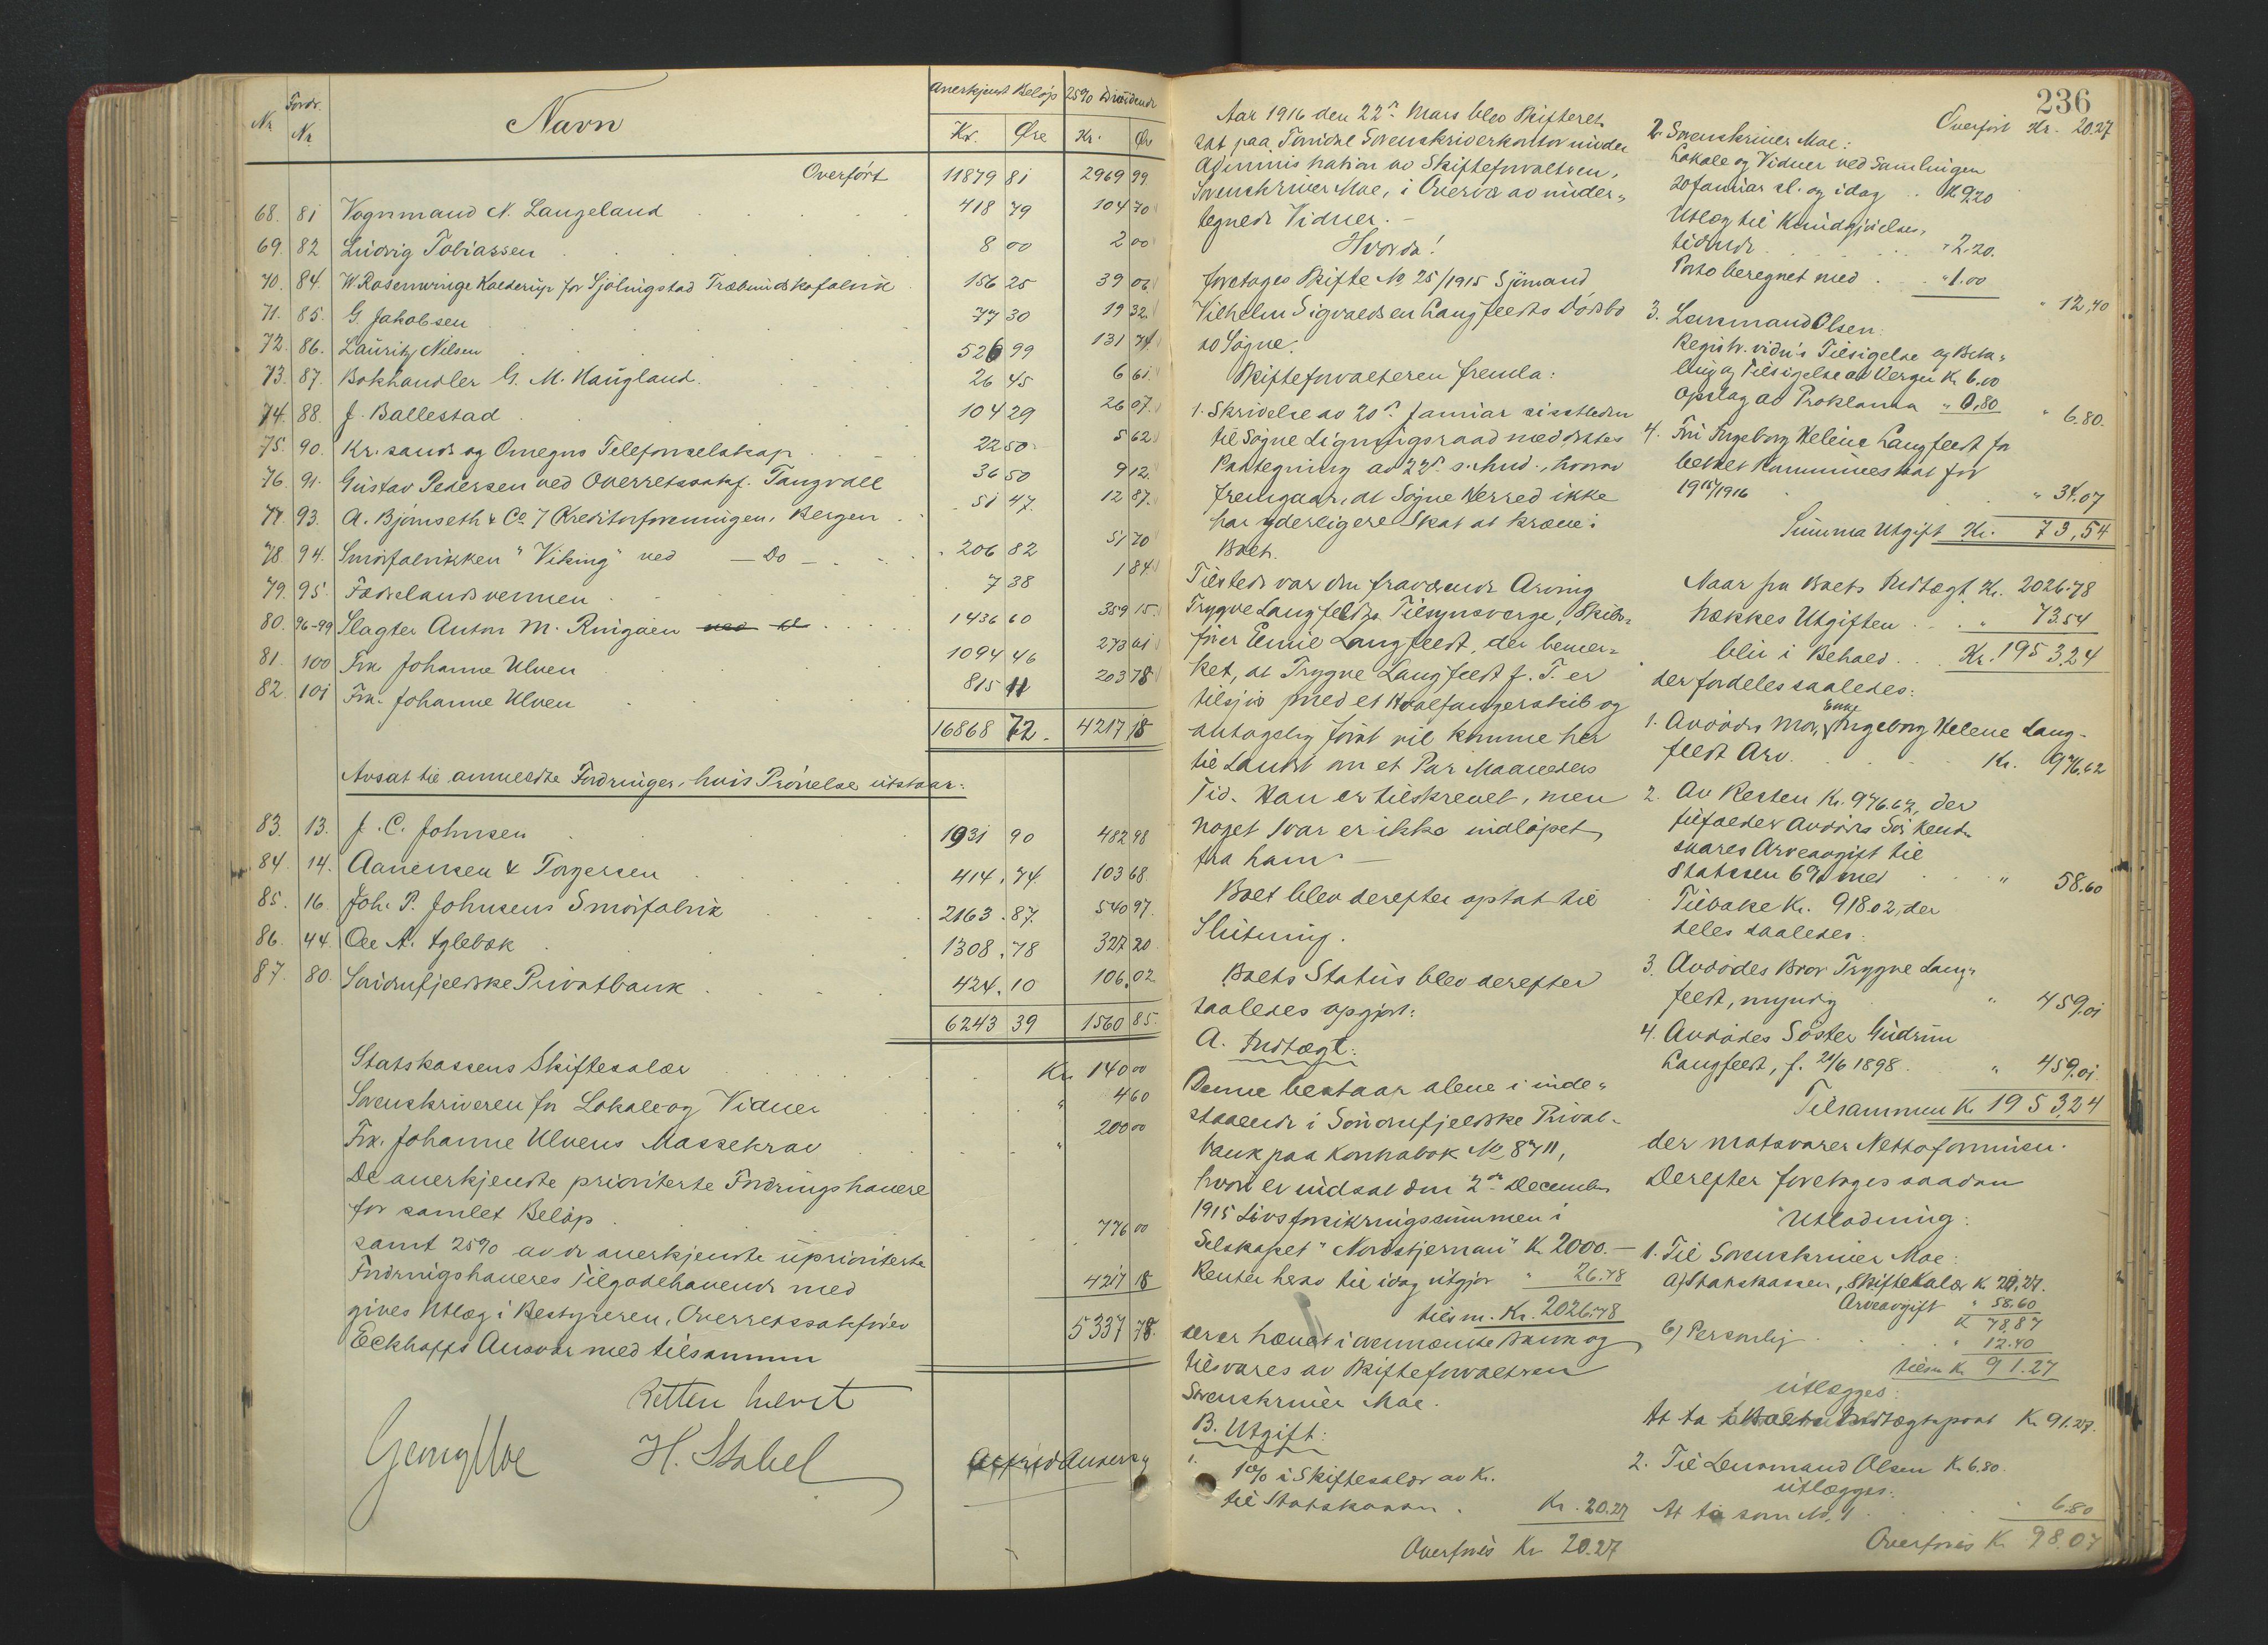 Nr. Fordr. Nr. Navn Anerkjent Beløp 25% Dividende
Kr. Øre Kr. Øre
Overført 11879 81 2969 99
68. 81 Vognmand N. Langeland 418 79 104 70
69. 82 Ludvig Tobiassen 8 00 2 00
70. 84. W. Rosenwinge Kolderup for Sjølingstad Træbundskofabrik 156 25 39 06
71. 85. G. Jakobsen 77 30 19 32
72. 86. Lauritz Nilsen 526 99 131 74
73. 87. Bokhandler G. M. Haugland. 26 45 6 61
74. 88. J. Ballestad 104 29 26 07.
75. 90. Kr.sands og Omegns Telefonselskap 22 50 5 62
76. 91. Gustav Pedersen ved Overretssakf. Tangvall 36 50 9 12.
77. 93. A. Bjørnseth & Co / Kreditorforeningen, Bergen 51 47. 12 87.
78. 94. Smørfabrikken "Viking" ved — Do — 206 82 51 70
79. 95. Fædrelandsvennen 7 38 1 84
80. 96-99 Slagter Anton M. Ringåen 1436 60 359 15
81. 100 Frk. Johanne Ulven 1094 46 273 61
82. 101 Frk. Johanne Ulven 815 11 203 78
16868 72. 4217 18
Avsat til anmeldte Fordringer, hvis Prøvelse utstaar:
83. 13. J. C. Johnsen 1931 90 482 98
84. 14. Aanensen & Torgersen 414. 74. 103 68.
85. 16. Joh. P. Johnsens Smørfabrik 2163. 87. 540 97.
86. 44. Ole A. Eglebæk 1308. 78 327 20.
87. 80. Søndenfjeldske Privatbank 424. 10 106. 02
6243 39 1560 85.
Statskassens Skiftesalær Kr. 140 00
Sorenskriveren for Lokale og Vidner " 4 60
Frk. Johanne Ulvens Massekrav " 200 00
De anerkjendte prioriterte Fordringshavere
for samlet Beløp 776 00
samt 25% av de anerkjendte uprioriterte
Fordringshaveres Tilgodehavende med 4217 18
gives Utlæg i Bestyreren, Overretssakfører
Eckhoffs Ansvar med tilsammen 5337 78.
Retten hevet
Georg Moe H. Stabel
236
Aar 1916 den 22de Mars blev Skifteret
sat paa Torridal Sorenskriverkontor under
Administration av Skifteforvalteren,
Sorenskriver Moe, i Overvær av under-
tegnede Vidner. —
Hvorda!
foretoges Skifte No 25/1915 Sjømand
Vilhelm Sigvaldsen Langfeldts Dødsbo
av Søgne.
Skifteforvalteren fremla:
1. Skrivelse av 20de Januar sidstleden
til Søgne Ligningsraad med dettes
Paategning av 22de s. Md., hvorav
fremgaar, at Søgne Herred ikke
har yderligere Skat at kræve i
Boet.
Tilstede var den fraværende Arving
Trygve Langfeldts Tilsynsverge, Skibs-
fører Emil Langfeldt, der bemer-
ket, at Trygve Langfeldt f. T. er
tilsjøs med et Hvalfangerskib og
antagelig først vil komme her
til Landet om et Par Maaneders
Tid. Han er tilskrevet, men
noget Svar er ikke indløpet
fra ham. —
Boet blev derefter optat til
Slutning.
Boets Status blev derefter
saaledes opgjort:
A. Indtægt:
Denne bestaar alene i inde-
staaende i Søndenfjeldske Privat-
bank paa Kontrabok No 8711,
hvori er indsat den 2den December
1915 Livsforsikringssummen i
Selskapet "Nordstjernen" Kr. 2000. —
Renter herav til idag utgjør " 26.78
tilsm. Kr. 2026.78
der er hævet i ovennævnte Bank og
tilsvares av Skifteforvalteren
Sorenskriver Moe.
B. Utgift:
1. 1% i Skiftesalær av Kr.
til Statskassen. Kr. 20.27
Overføres Kr. 20.27
Overført Kr. 20.27
2. Sorenskriver Moe:
Lokale og Vidner ved Samlingen
20 Januar sl. og idag Kr. 9.20
Utlæg til Kundgjørelses-
tidende " 2.20.
Porto beregnet med " 1.00
" 12,40
3. Lensmand Olsen:
Registr. vidn's Tilsigelse og Beta-
ling og Tilsigelse av Verger Kr. 6.00
Opslag av Proklama " 0,80
" 6.80.
4. Fru Ingeborg Helene Langfeldt for
betalt Kommuneskat for
1915/1916 " 34.07
Summa Utgift Kr. 73,54
Naar fra Boets Indtægt Kr. 2026.78
trækkes Utgiften " 73.54
blir i Behold Kr. 1953.24
der fordeles saaledes:
1. Avdødes Mor, Enke Ingeborg Helene Lang-
feldt Arv. Kr. 976.62
2. Av Resten Kr. 976.62, der
tilfalder Avdødes Søskende
svares Arveavgift til
Statskassen 6% med " 58.60
Tilbake Kr. 918.02, der
deles saaledes:
3. Avdødes Bror Trygve Lang-
feldt, myndig " 459.01
4. Avdødes Søster Gudrun
Langfeldt, f. 21/6 1898. " 459.01.
Tilsammen Kr. 1953.24
der motsvarer Nettoformuen.
Derefter foretoges saadan
Utlodning:
1. Til Sorenskriver Moe:
a) Statskassen, Skiftesalær Kr. 20.27.
Arveavgift " 58.60
Kr. 78.87
b) Personlig " 12.40
tilsm Kr. 91.27
utlægges:
At ta i Boets Indtægtspost Kr. 91.27.
2. Til Lensmand Olsen Kr. 6.80.
utlægges:
At ta som No. 1 6.80
Overføres Kr. 98.07